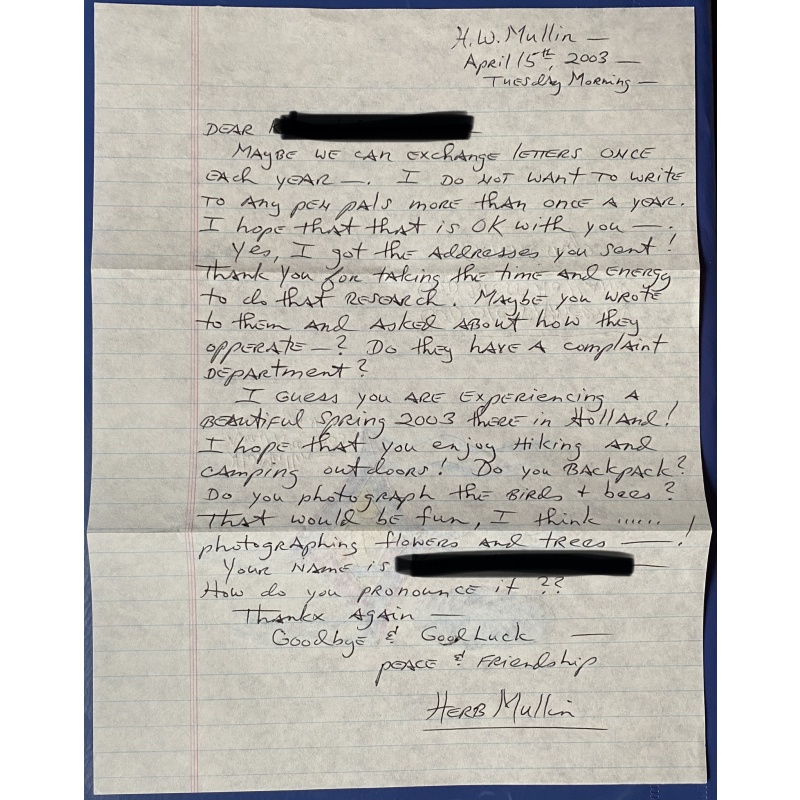 H.W. Mullin —
April 15th, 2003 —
Tuesday Morning —
DEAR
MAYBE WE CAN EXCHANGE LETTERS ONCE
EACH YEAR —. I DO NOT WANT TO WRITE
TO ANY PEN PALS MORE THAN ONCE A YEAR.
I hope that that is OK with you —.
Yes, I got the ADDRESSES you sent!
Thank You for taking the time AND ENERGY
to do that RESEARCH. MAYBE you WROTE
to them AND ASKED ABOUT how they
OPPERATE —? Do they HAVE A complaint
DEPARTMENT?
I GUESS you ARE EXPERIENCING A
BEAUTIFUL SPRING 2003 THERE in HOLLAND!
I hope that you enjoy Hiking AND
CAMPING outdoors! Do you BACKPACK?
Do you photograph the BIRDS + bees?
That would be fun, I think ......
photographing flowers AND trees —!
YOUR NAME is
How do you PRONOUNCE it ??
Thankx Again —
Goodbye & Good Luck —
PEACE & FRIENDSHIP
HERB Mullin